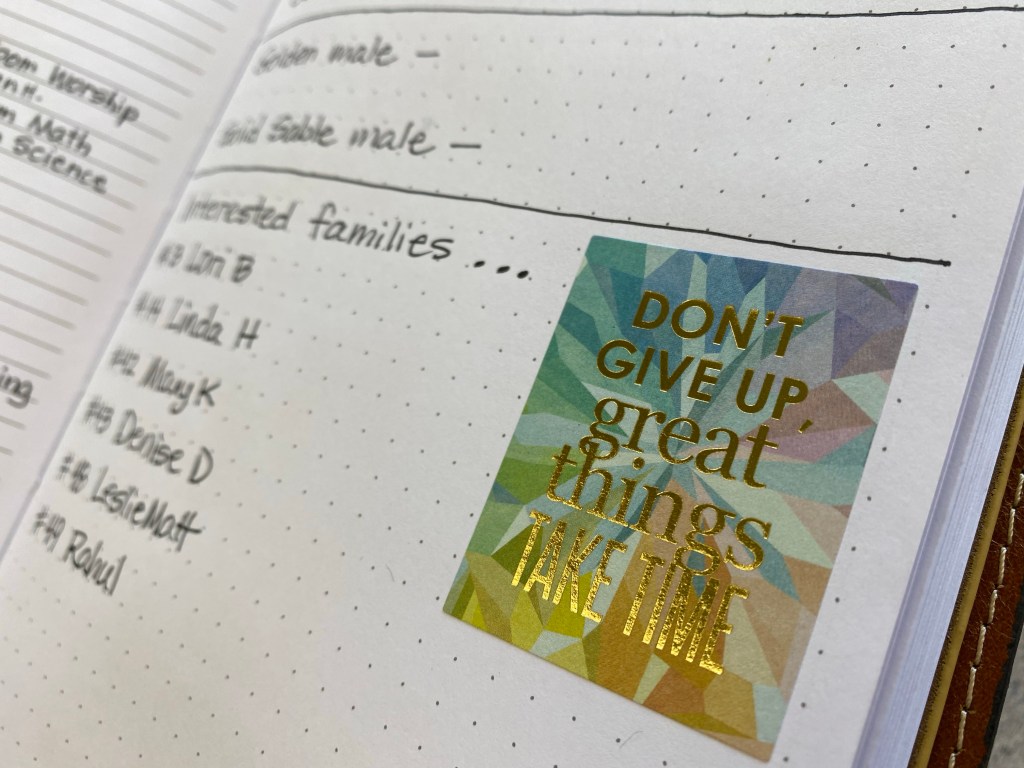 Worship
Math
Science
Golden male –
Sable male –
Interested families ...
#3 Lori B
Linda H
#42 Mary K
#43 Denise D
#46 Leslie Matt
#49 Rahul
DON'T
GIVE UP,
great
things
TAKE TIME